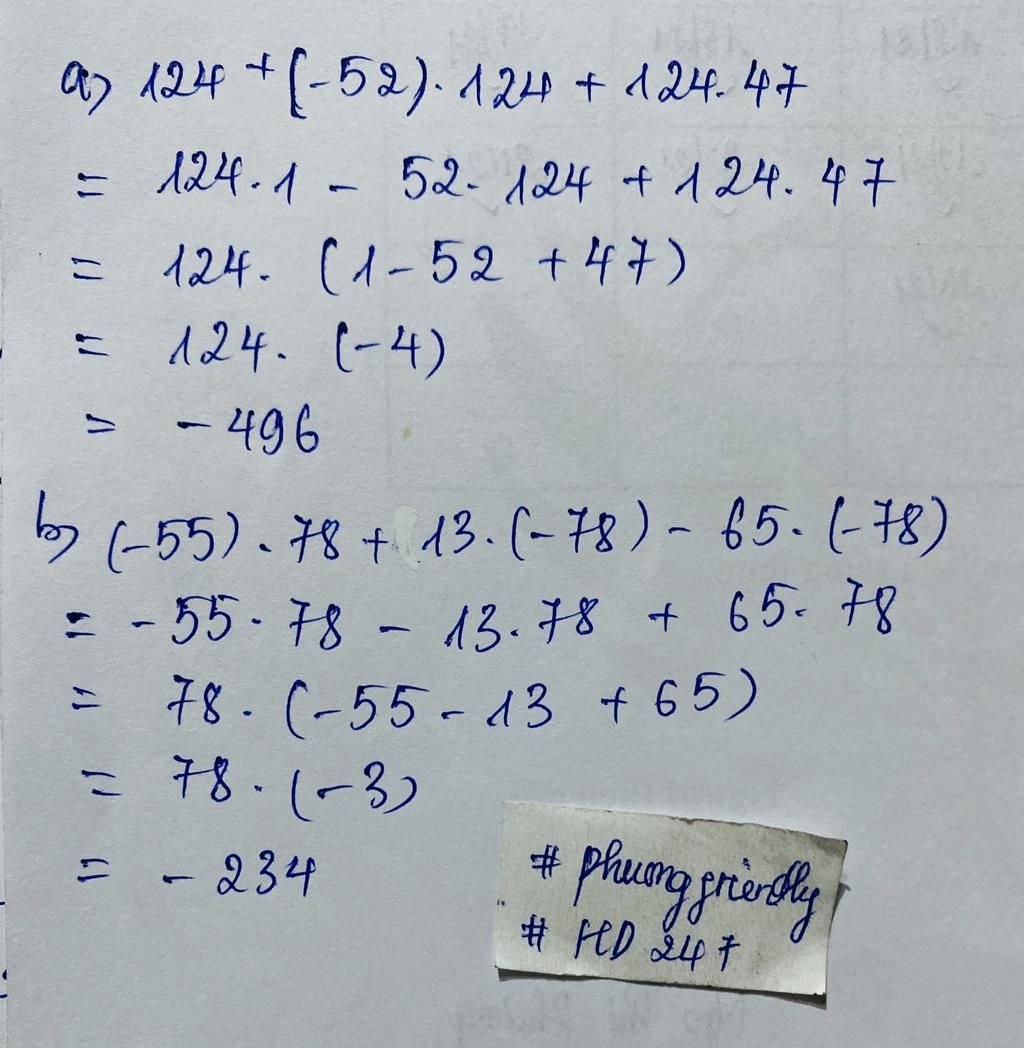 a) 124 + (-52). 124 + 124. 47
= 124. 1 - 52. 124 + 124. 47
= 124. (1 - 52 + 47)
= 124. (-4)
= -496
b) (-55). 78 + 13. (-78) - 65. (-78)
= -55. 78 - 13. 78 + 65. 78
= 78. (-55 - 13 + 65)
= 78. (-3)
= -234
# phuongfriendly
# HD 247